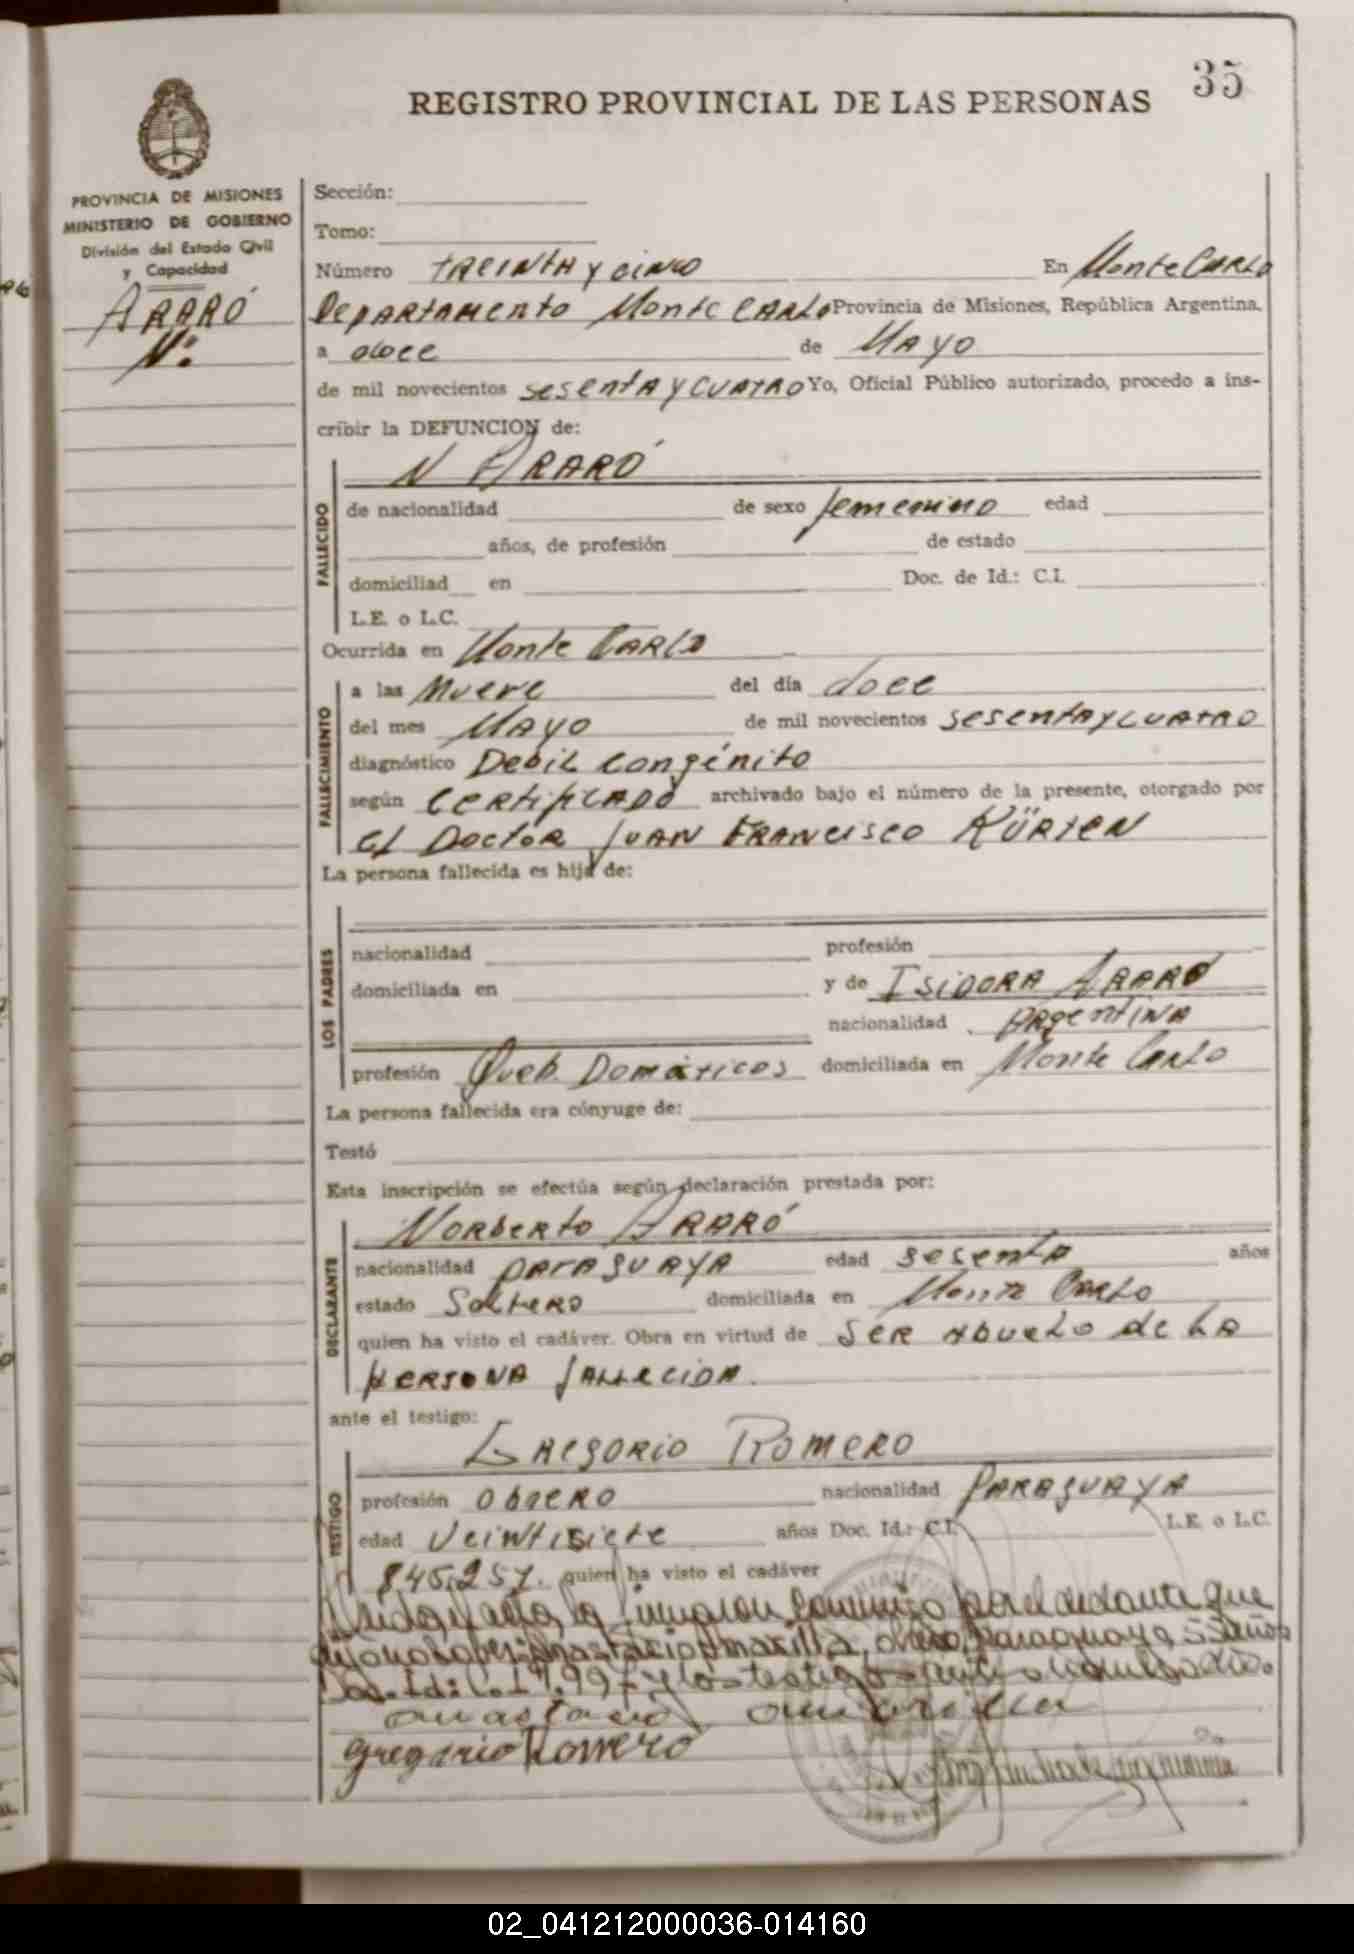 35
REGISTRO PROVINCIAL DE LAS PERSONAS
PROVINCIA DE MISIONES
MINISTERIO DE GOBIERNO
División del Estado Civil
y Capacidad
ARARÓ
N:
Sección:
Tomo:
Número treinta y cinco En Monte Carlo
Departamento Monte Carlo Provincia de Misiones, República Argentina,
a doce de Mayo
de mil novecientos sesenta y cuatro Yo, Oficial Público autorizado, procedo a ins-
cribir la DEFUNCION de:
N ARARÓ
FALLECIDO
de nacionalidad de sexo femenino edad
años, de profesión de estado
domiciliad en Doc. de Id.: C.I.
L.E. o L.C.
Ocurrida en Monte Carlo
FALLECIMIENTO
a las nueve del día doce
del mes Mayo de mil novecientos sesenta y cuatro
diagnóstico Debil congénito
según certificado archivado bajo el número de la presente, otorgado por
el Doctor Juan Francisco Kürten
La persona fallecida es hija de:
LOS PADRES
nacionalidad profesión
domiciliada en y de Isidora Araró
nacionalidad Argentina
profesión Queh. Domésticos domiciliada en Monte Carlo
La persona fallecida era cónyuge de:
Testó
Esta inscripción se efectúa según declaración prestada por:
Norberto Araró
DECLARANTE
nacionalidad paraguaya edad sesenta años
estado Soltero domiciliada en Monte Carlo
quien ha visto el cadáver. Obra en virtud de ser abuelo de la
persona fallecida.
ante el testigo:
Gregorio Romero
TESTIGO
profesión obrero nacionalidad Paraguaya
edad veintisiete años Doc. Id.: C.I. L.E. o L.C.
845.257. quien ha visto el cadáver
Leida el acta, la firmaron conmigo por el declarante que
dijo no saber: Anastacio Amarilla, paraguaya 55 años
Doc. Id: 
anastacio amarilla
Gregorio Romero
02_041212000036-014160